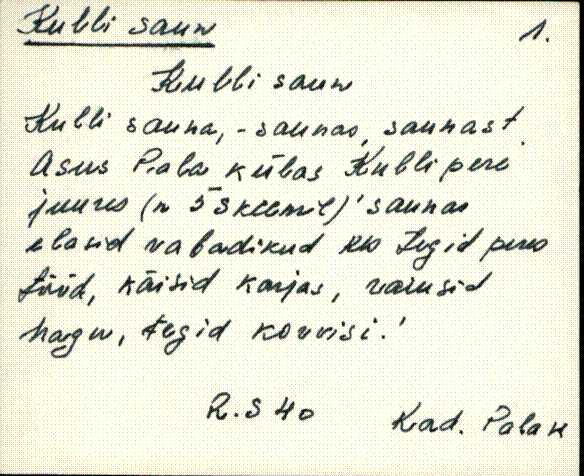 Kulli saun 1.
Kulli saun
Kulli sauna, -saunas, saunast.
Asus Pala külas Kulli pere
juures (n 5 skeemil)' saunas
elasid vabadikud kes tegid peres
tööd, käisid karjas, raiusid
hagu, tegid korvisi.'
R.S 40 Kad. Palak